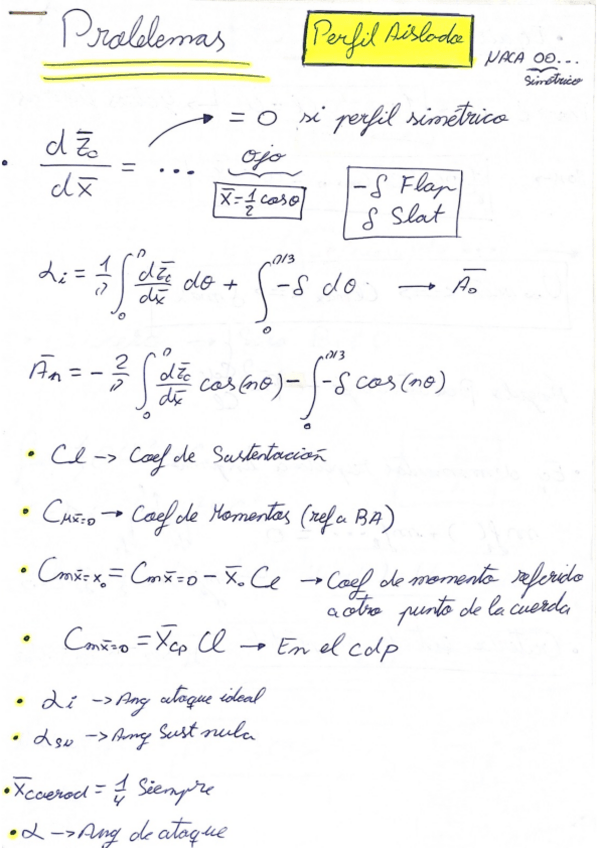 Problemas
Perfil Aislado
NACA 00...
simétrico
= 0 si perfil simétrico
dz̄c/dx̄ = ...
ojo
x̄=1/2 cosθ
-δ Flap
δ Slat
αi = 1/π ∫₀^π dz̄c/dx̄ dθ + ∫₀^π/3 -δ dθ → Ā₀
Ān = - 2/π ∫₀^π dz̄c/dx̄ cos(nθ) - ∫₀^π/3 -δ cos(nθ)
• Cl -> Coef de Sustentación
• CMx̄=0 → Coef de Momentos (ref a BA)
• Cmx̄=x₀ = Cmx̄=0 - x̄₀ Cl → Coef de momento referido
a otro punto de la cuerda
• Cmx̄=0 = x̄cp Cl → En el cdp
• αi -> Ang ataque ideal
• αsn -> Ang Sust nula
• x̄caerod = 1/4 Siempre
• α -> Ang de ataque